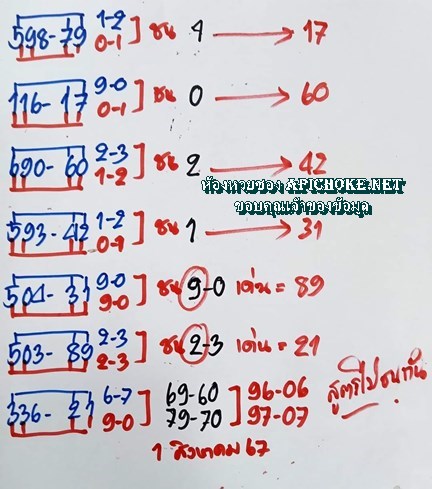 598-79 1-2 0-1 ] ชน 1 → 17
116-17 9-0 0-1 ] ชน 0 → 60
690-60 2-3 1-2 ] ชน 2 → 42
ห้องหวยซอง APICHOKE.NET
ขอบคุณเจ้าของข้อมูล
593-42 1-2 0-1 ] ชน 1 → 31
504-31 9-0 9-0 ] ชน 9-0 เด่น = 89
503-89 2-3 2-3 ] ชน 2-3 เด่น = 21
336-21 6-7 9-0 ] 69-60 79-70 ] 96-06 97-07
สูตรไปชนกัน
1 สิงหาคม 67